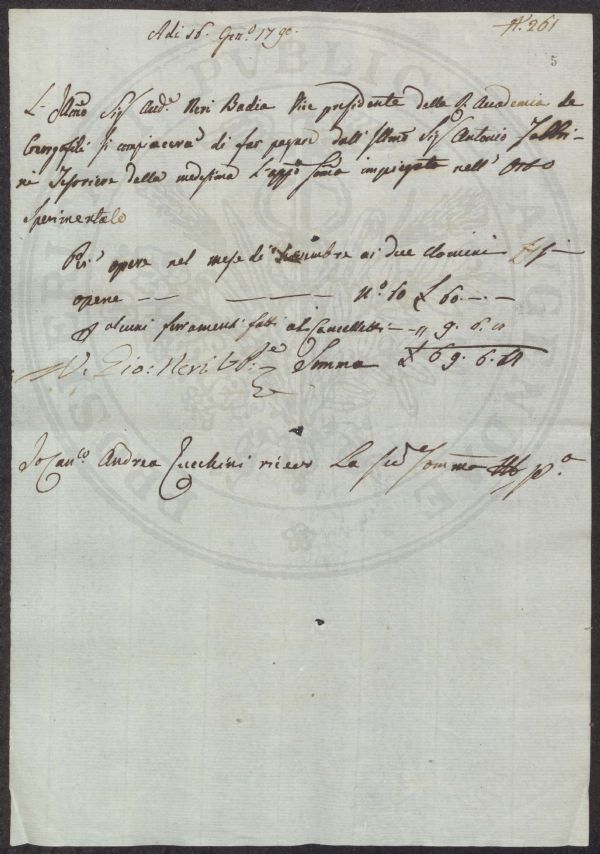 Adi 16. Gen.º 1790.
N. 261
5
L. Illmo Sig.r Aud.e Neri Badia Vice presidente della R. Accademia de
Georgofili si compiacerà di far pagare dall' Illmo Sig.r Antonio
Tesoriere della medesima l'app.a soma impiegata nell' Orto
Sperimentale
opere nel mese di Dicembre ai due Uomini
opere -- -- n.º 10 £ 60.-.-
alcuni ferramenti fatti ai Cancelletti - ,, 9. 6.
V. Gio: Neri V.P.e Somma £ 69. 6.
Io Andrea Zucchini ricevo la somma
PUBLICAE
PROSPERITATIS